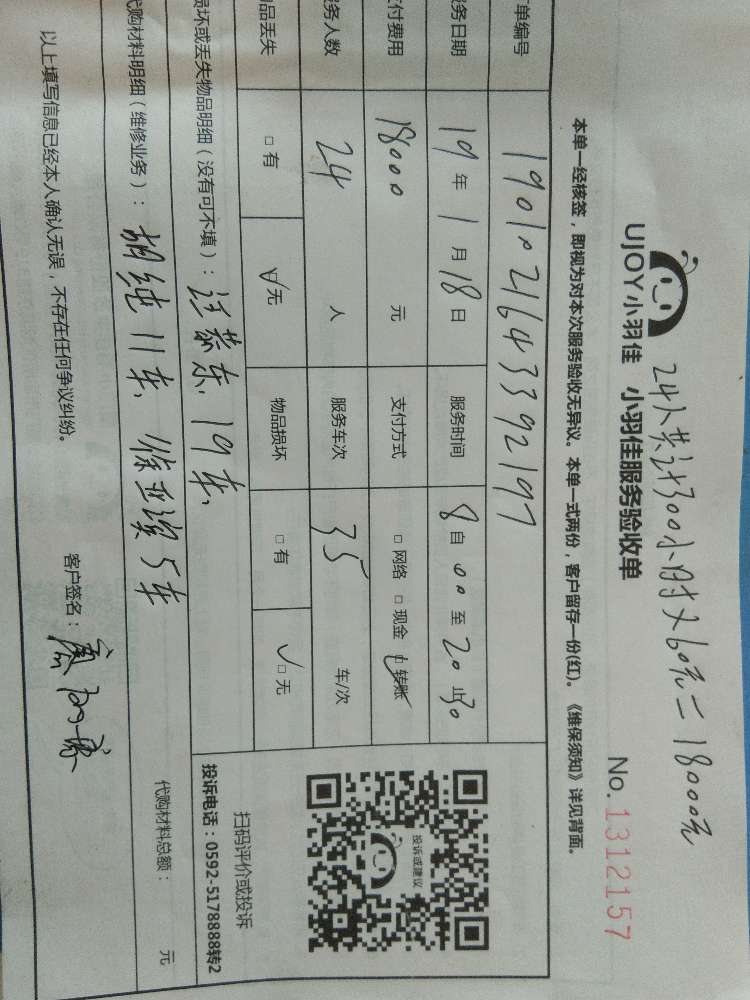 24人共计300小时×60元=18000元
UJOY小羽佳 小羽佳服务验收单
No.1312157
本单一经核签，即视为对本次服务验收无异议。本单一式两份，客户留存一份(红)。《维保须知》详见背面。
单编号 1901021643392197
务日期 19年1月18日 服务时间 8自00至20止30
付费用 18000元 支付方式 □网络 □现金 □转账
务人数 24人 服务车次 35车/次
品丢失 □有 □无 物品损坏 □有 □无
投诉或建议
扫码评价或投诉
投诉电话：0592-5178888转2
损坏或丢失物品明细（没有可不填）： 东，19车，
代购材料明细（维修业务）：胡纯11车， 5车
代购材料总额： 元
以上填写信息已经本人确认无误，不存在任何争议纠纷。
客户签名：